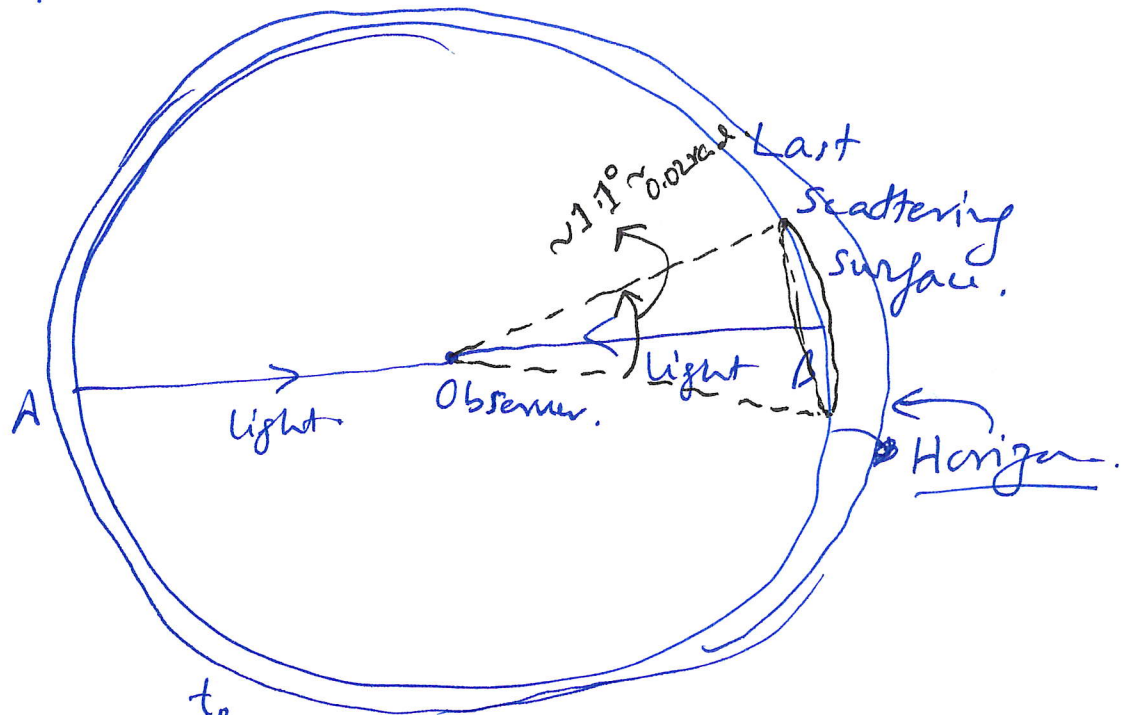 ~1.1° ~ 0.02rad
Last
Scattering
Surface.
A
light.
Observer.
light
B
Horizon.
t₀